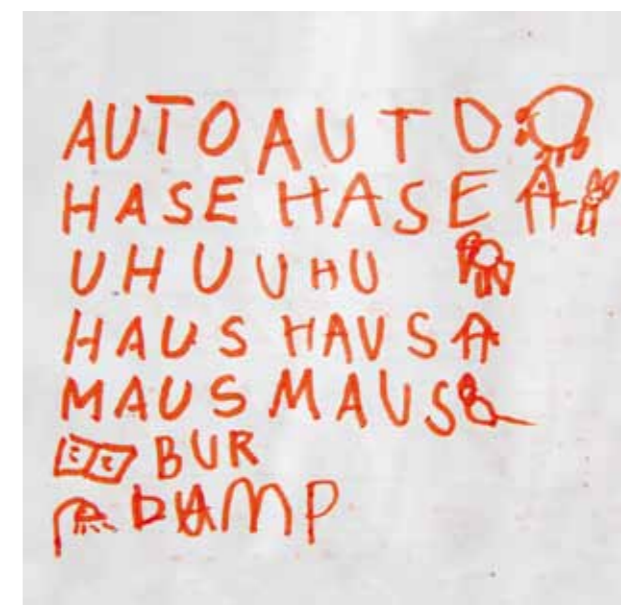 AUTO AUTO
HASE HASE
UHU UHU
HAUS HAUS
MAUS MAUS
BUR
DAMP